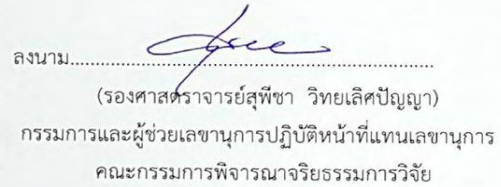 ลงนาม......................................................................
(รองศาสตราจารย์สุพีชา วิทยเลิศปัญญา)
กรรมการและผู้ช่วยเลขานุการปฏิบัติหน้าที่แทนเลขานุการ
คณะกรรมการพิจารณาจริยธรรมการวิจัย